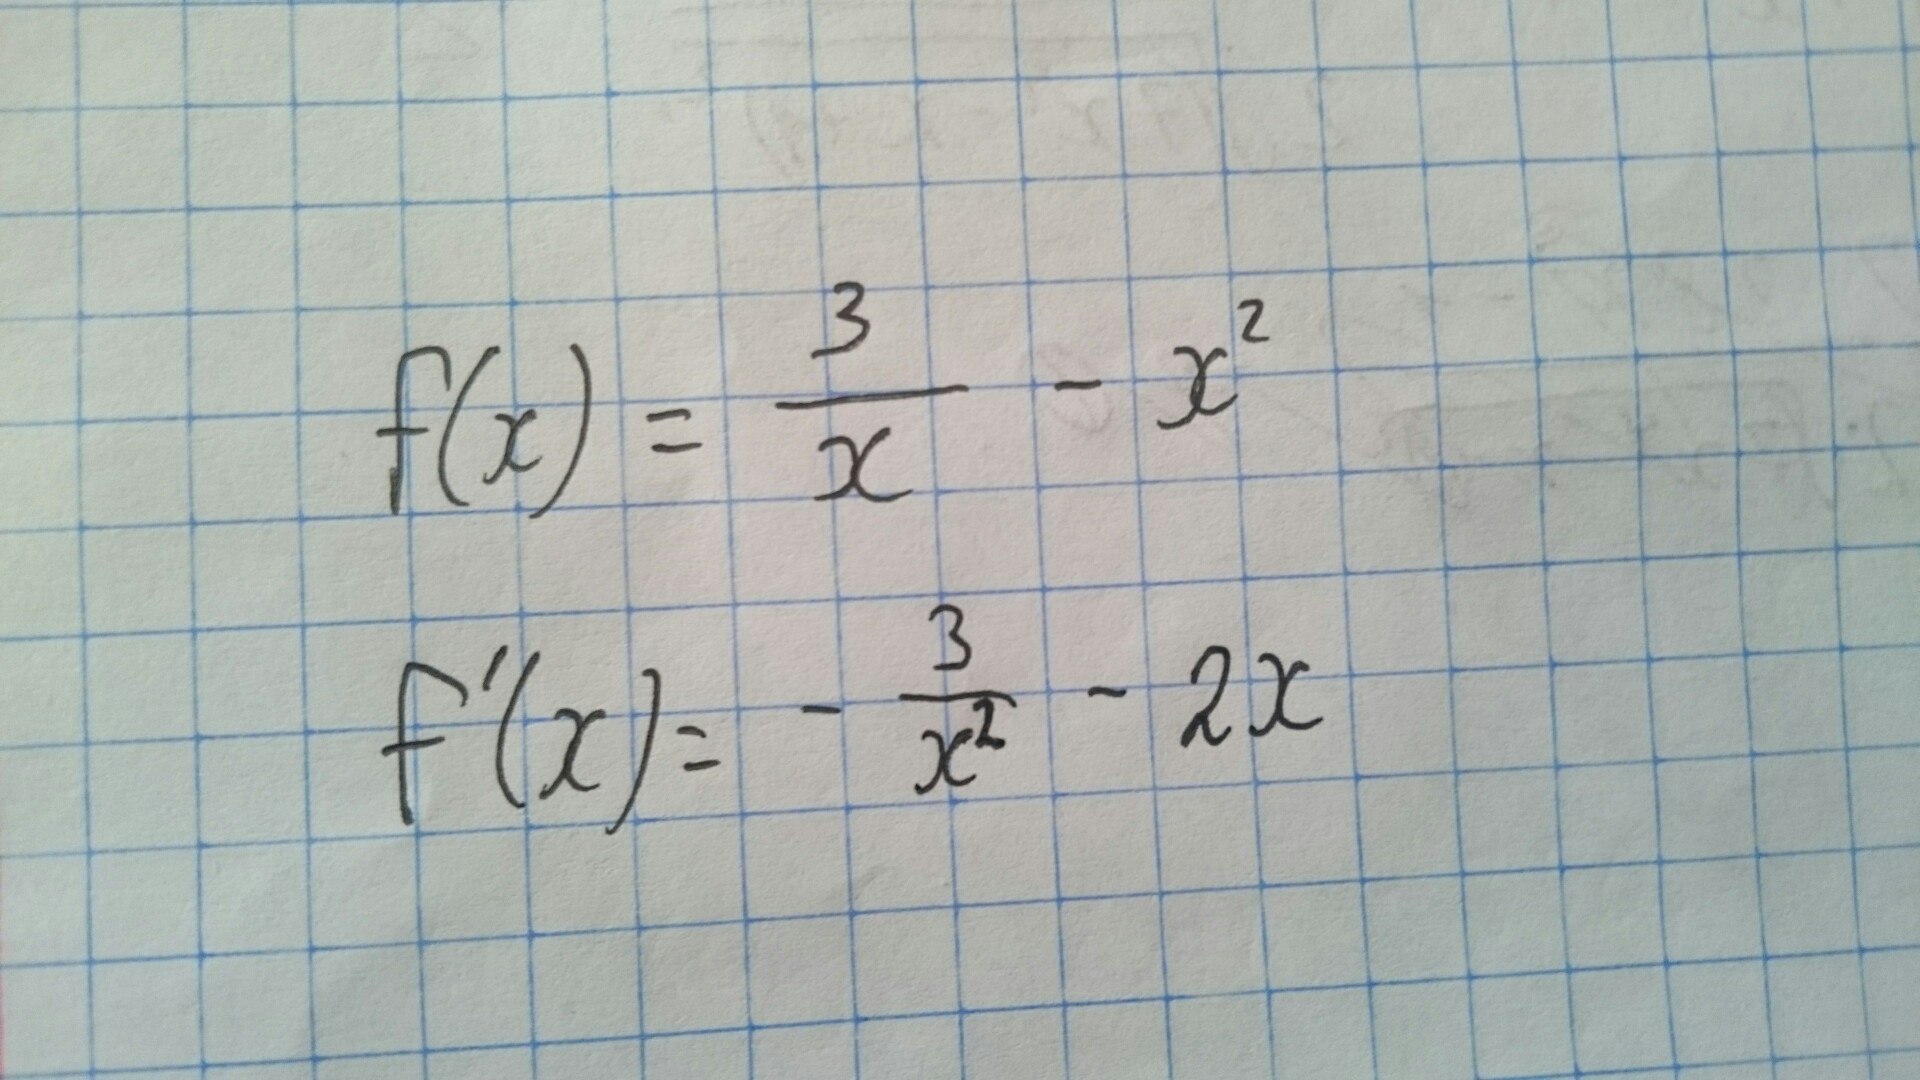 f(x) = 3/x - x²
f'(x) = - 3/x² - 2x